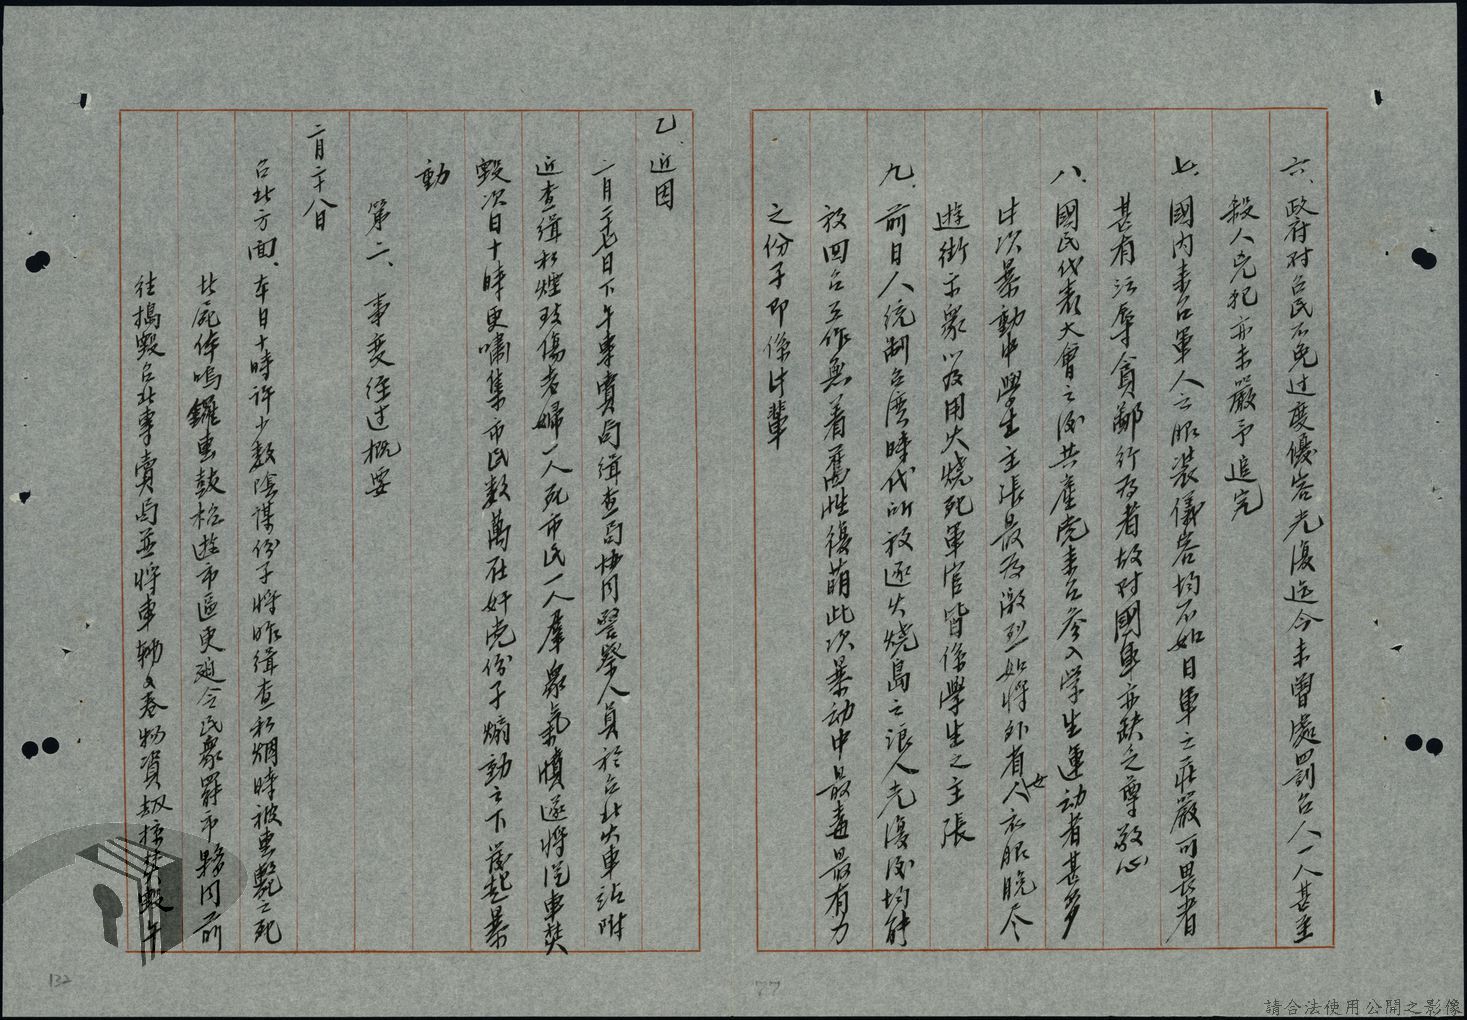 六、政府对台民不免过度優容光復迄今未曾處罰台人一人甚至
殺人兇犯亦未嚴予追究
七、國内来台軍人之服裝儀容均不如日軍之莊嚴可畏者
甚有污辱貪鄙行为者故对國軍亦缺乏尊敬心
八、國民代表大會之後共產党来台参入学生運动者甚多
此次暴動中學生主張最为激烈如將外省女人衣服脱尽
遊街示衆以及用火燒死軍官皆係學生之主張
九、前日人統制台湾時代所放逐火燒島之浪人光復後均釋
放回台工作無着舊性復萌此次暴动中最毒最有力
之份子即係此輩
乙、近因
二月二十七日下午專賣局緝查局協同警察人員於台北火車站附
近查緝私煙致傷老婦一人死市民一人羣衆氣憤遂將汽車焚
毀次日十時更嘯集市民数萬在奸党份子煽動之下遂起暴
動
第二、事变经过概要
二月二十八日
台北方面、本日十時许少数陰謀份子將昨緝查私烟時被击斃之死
者屍体鳴鑼击鼓抬遊市區更迫令民衆罷市夥同前
往搗毀台北專賣局並将車輛文卷物資劫掠焚毀午
132
77
請合法使用公開之影像